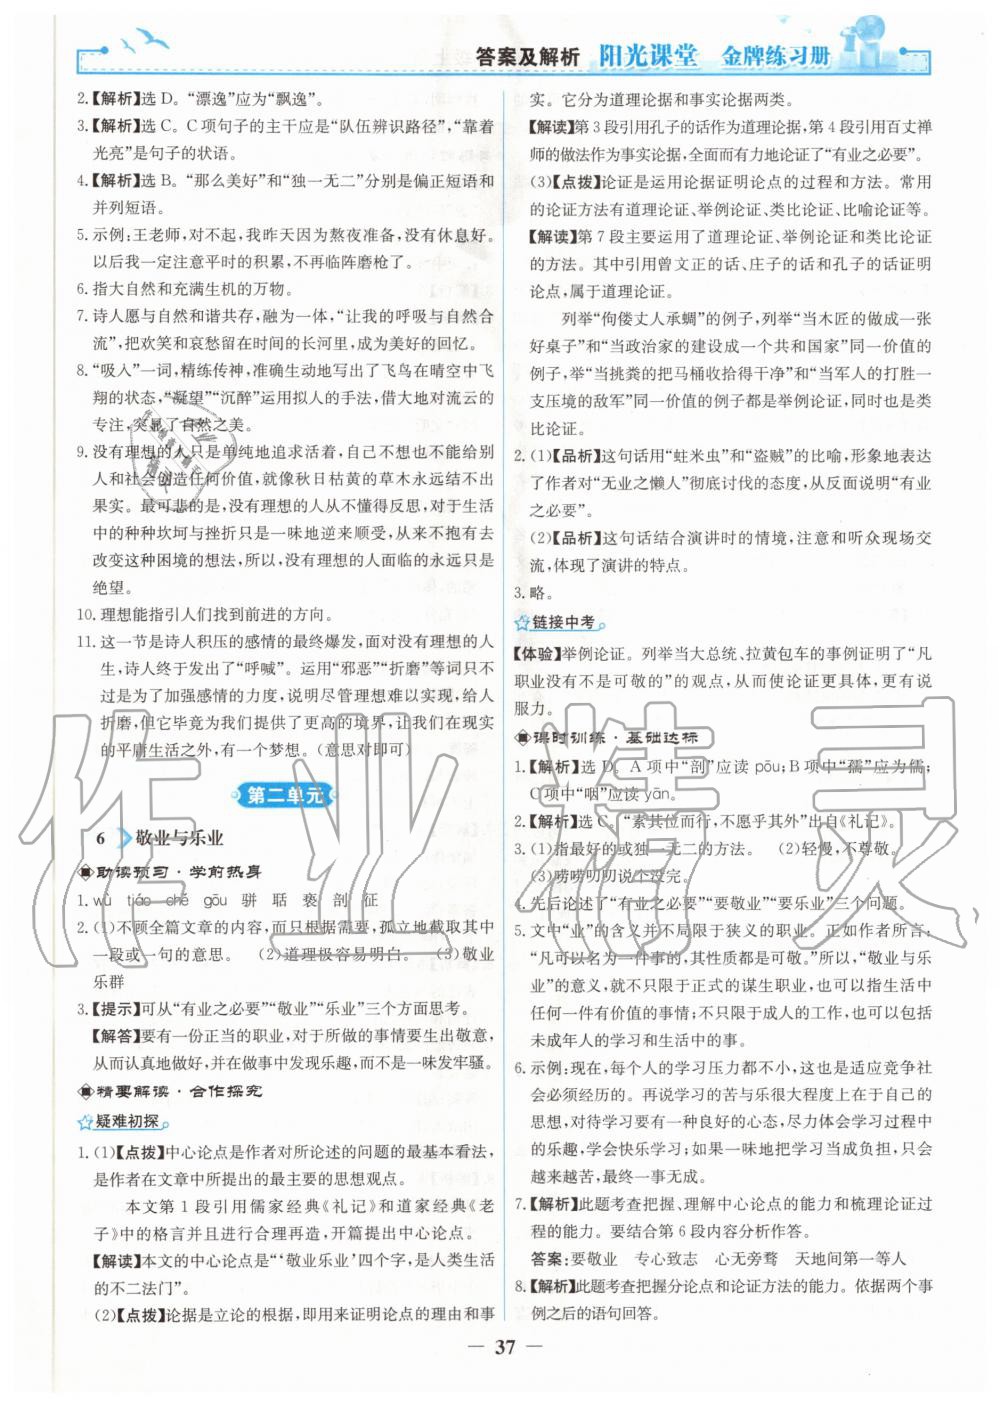 答案及解析 阳光课堂 金牌练习册
2.【解析】选 D。“漂逸”应为“飘逸”。
3.【解析】选 C。C 项句子的主干应是“队伍辨识路径”,“靠着
光亮”是句子的状语。
4.【解析】选 B。“那么美好”和“独一无二”分别是偏正短语和
并列短语。
5. 示例:王老师,对不起,我昨天因为熬夜准备,没有休息好。
以后我一定注意平时的积累,不再临阵磨枪了。
6. 指大自然和充满生机的万物。
7. 诗人愿与自然和谐共存,融为一体,“让我的呼吸与自然合
流”,把欢笑和哀愁留在时间的长河里,成为美好的回忆。
8. “吸入”一词,精练传神,准确生动地写出了飞鸟在晴空中飞
翔的状态,“凝望”“沉醉”运用拟人的手法,借大地对流云的
专注,突显了自然之美。
9. 没有理想的人只是单纯地追求活着,自己不想也不能给别
人和社会创造任何价值,就像秋日枯黄的草木永远结不出
果实。最可悲的是,没有理想的人从不懂得反思,对于生活
中的种种坎坷与挫折只是一味地逆来顺受,从来不抱有去
改变这种困境的想法,所以,没有理想的人面临的永远只是
绝望。
10. 理想能指引人们找到前进的方向。
11. 这一节是诗人积压的感情的最终爆发,面对没有理想的人
生,诗人终于发出了“呼喊”。运用“邪恶”“折磨”等词只不过
是为了加强感情的力度,说明尽管理想难以实现,给人
折磨,但它毕竟为我们提供了更高的境界,让我们在现实
的平庸生活之外,有一个梦想。(意思对即可)
第二单元
6 敬业与乐业
助读预习·学前热身
1. wù tiáo chě gōu 骈 聒 亵 剖 征
2. (1)不顾全篇文章的内容,而只根据需要,孤立地截取其中
一段或一句的意思。 (2)道理极容易明白。 (3)敬业
乐群
3.【提示】可从“有业之必要”“敬业”“乐业”三个方面思考。
【解答】要有一份正当的职业,对于所做的事情要生出敬意,
从而认真地做好,并在做事中发现乐趣,而不是一味发牢骚。
精要解读·合作探究
疑难初探
1. (1)【点拨】中心论点是作者对所论述的问题的最基本看法,
是作者在文章中所提出的最主要的思想观点。
本文第 1 段引用儒家经典《礼记》和道家经典《老
子》中的格言并且进行合理再造,开篇提出中心论点。
【解读】本文的中心论点是“‘敬业乐业’四个字,是人类生活
的不二法门”。
(2)【点拨】论据是立论的根据,即用来证明论点的理由和事
实。它分为道理论据和事实论据两类。
【解读】第 3 段引用孔子的话作为道理论据,第 4 段引用百丈禅
师的做法作为事实论据,全面而有力地论证了“有业之必要”。
(3)【点拨】论证是运用论据证明论点的过程和方法。常用
的论证方法有道理论证、举例论证、类比论证、比喻论证等。
【解读】第 7 段主要运用了道理论证、举例论证和类比论证的
方法。其中引用曾文正的话、庄子的话和孔子的话证明
论点,属于道理论证。
列举“佝偻丈人承蜩”的例子,列举“当木匠的做成一张
好桌子”和“当政治家的建设成一个共和国家”同一价值的
例子,举“当挑粪的把马桶收拾得干净”和“当军人的打胜一
支压境的敌军”同一价值的例子都是举例论证,同时也是类
比论证。
2. (1)【品析】这句话用“蛀米虫”和“盗贼”的比喻,形象地表达
了作者对“无业之懒人”彻底讨伐的态度,从反面说明“有业
之必要”。
(2)【品析】这句话结合演讲时的情境,注意和听众现场交
流,体现了演讲的特点。
3. 略。
链接中考
【体验】举例论证。列举当大总统、拉黄包车的事例证明了“凡
职业没有不是可敬的”的观点,从而使论证更具体,更有说
服力。
课时训练·基础达标
1.【解析】选 D。A 项中“剖”应读 pōu;B 项中“孺”应为儒;
C项中“咽”应读 yān。
2.【解析】选 C。“素其位而行,不愿乎其外”出自《礼记》。
3. (1)指最好的或独一无二的方法。 (2)轻慢,不尊敬。
(3)唠唠叨叨说个没完。
4. 先后论述了“有业之必要”“要敬业”“要乐业”三个问题。
5. 文中“业”的含义并不局限于狭义的职业。正如作者所言:
“凡可以名为一件事的,其性质都是可敬。”所以,“敬业与乐
业”的意义,就不只限于正式的谋生职业,也可以指生活中
任何一件有价值的事情;不只限于成人的工作,也可以包括
未成年人的学习和生活中的事。
6. 示例:现在,每个人的学习压力都不小,这是应对竞争社会
必须经历的。再说学习的苦与乐很大程度上在于自己的
思想,对待学习要有一种良好的心态,尽力去发掘学习过程中
的乐趣,学会快乐学习;如果一味地把学习当成负担,只会
越来越痛苦,最终一事无成。
7.【解析】此题考查把握、理解中心论点的能力和梳理论证过
程的能力。要结合第 6 段内容分析作答。
答案:要敬业 专心致志 心无旁骛 天地间第一等人
8.【解析】此题考查把握分论点和论证方法的能力。依据两个事
例之后的语句回答。
37
作业精灵